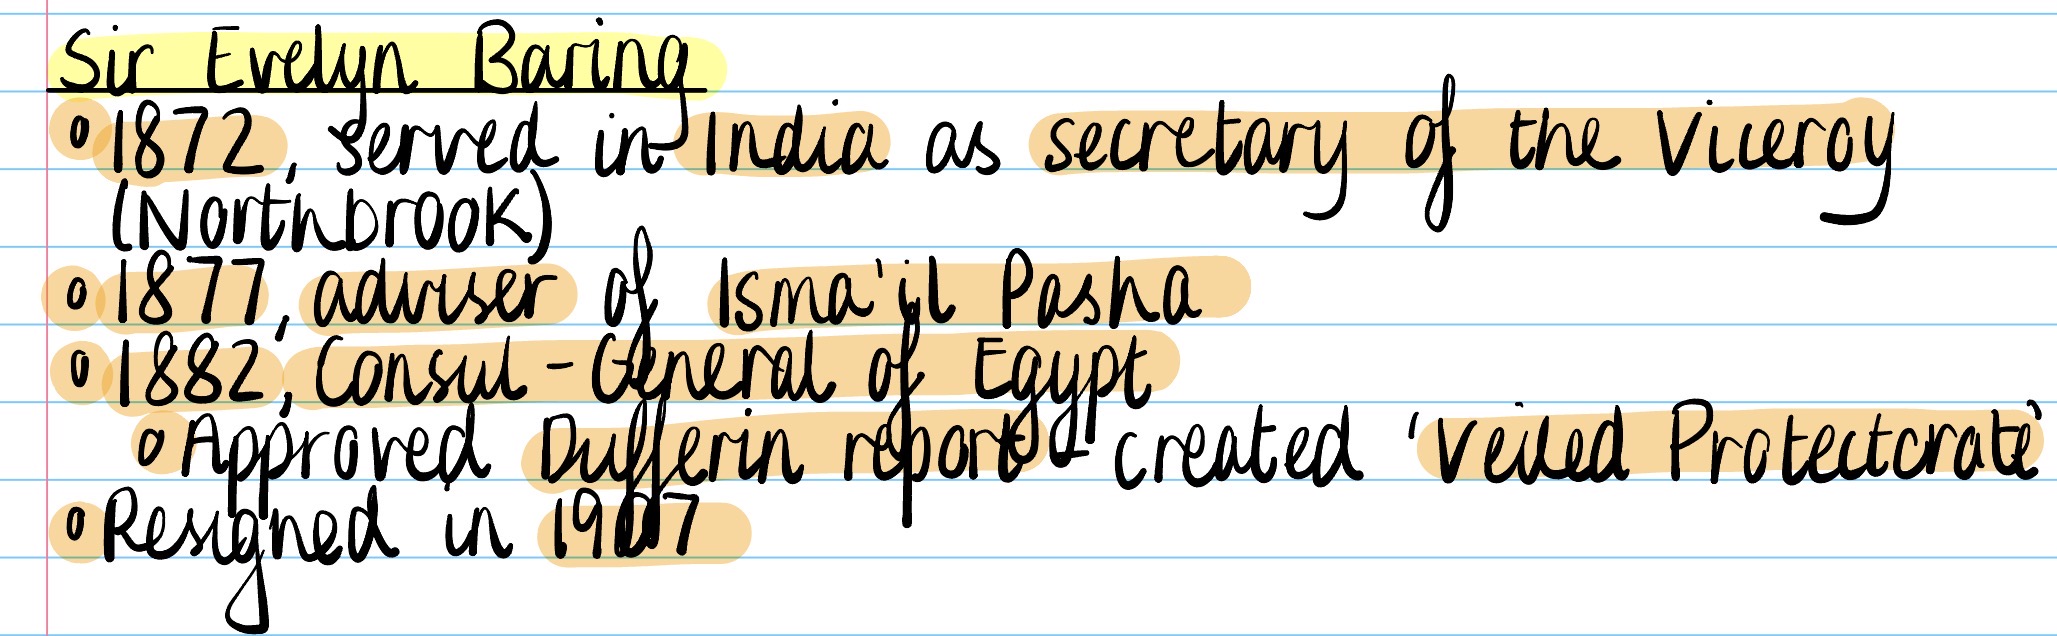 Sir Evelyn Baring
o 1872, served in India as secretary of the Viceroy
(Northbrook)
o 1877, adviser of Isma'il Pasha
o 1882, Consul-General of Egypt
o Approved Dufferin report - created 'Veiled Protectorate'
o Resigned in 1907